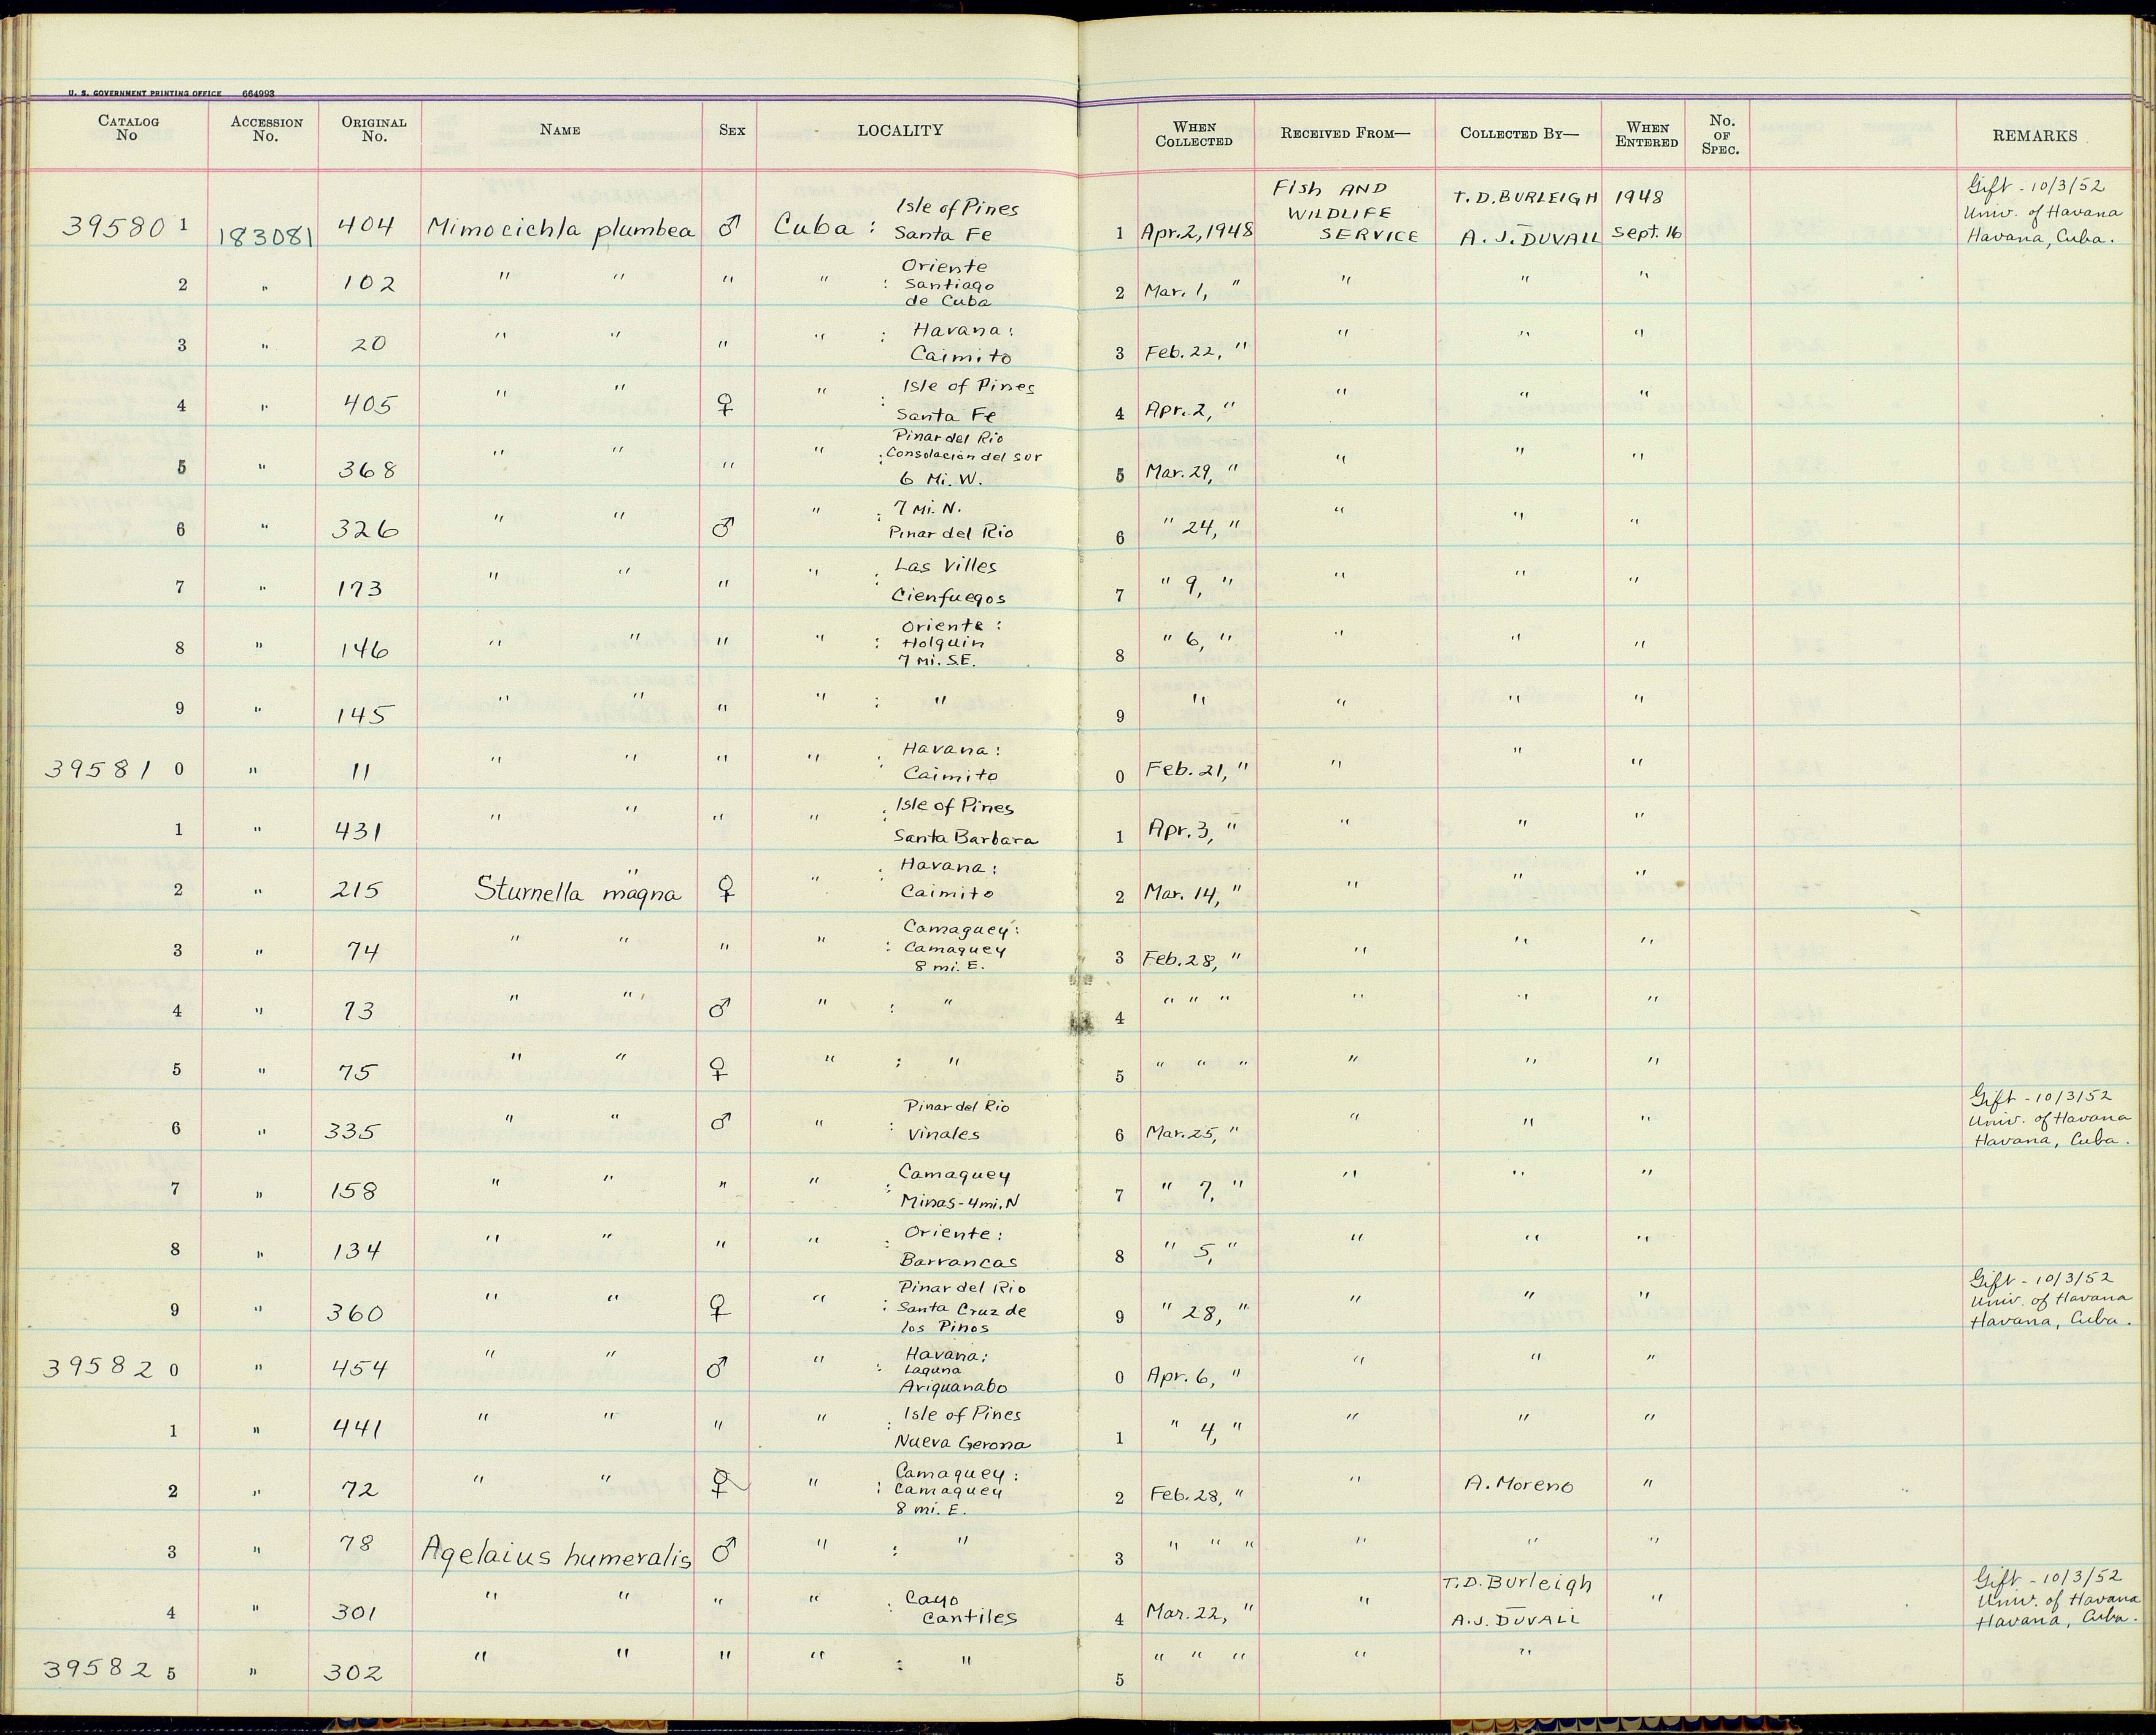 U. S. GOVERNMENT PRINTING OFFICE 664993
CATALOG No ACCESSION No. ORIGINAL No. NAME SEX LOCALITY WHEN COLLECTED RECEIVED FROM— COLLECTED BY— WHEN ENTERED No. OF SPEC. REMARKS
39580 1 183081 404 Mimocichla plumbea ♂ Cuba : Isle of Pines Santa Fe 1 Apr. 2, 1948 Fish AND WILDLIFE SERVICE T. D. BURLEIGH A. J. DUVALL 1948 Sept. 16 Gift - 10/3/52 Univ. of Havana Havana, Cuba.
2 " 102 " " " " : Oriente Santiago de Cuba 2 Mar. 1, " " " "
3 " 20 " " " " : Havana: Caimito 3 Feb. 22, " " " "
4 " 405 " " ♀ " : Isle of Pines Santa Fe 4 Apr. 2, " " " "
5 " 368 " " " " : Pinar del Rio Consolación del Sur 6 Mi. W. 5 Mar. 29, " " " "
6 " 326 " " ♂ " : 7 Mi. N. Pinar del Rio 6 " 24, " " " "
7 " 173 " " " " : Las Villes Cienfuegos 7 " 9, " " " "
8 " 146 " " " " : Oriente : Holquin 7 Mi. S.E. 8 " 6, " " " "
9 " 145 " " " " : " 9 " " " "
39581 0 " 11 " " " " : Havana: Caimito 0 Feb. 21, " " " "
1 " 431 " " " " : Isle of Pines Santa Barbara 1 Apr. 3, " " " "
2 " 215 Sturnella magna ♀ " : Havana: Caimito 2 Mar. 14, " " " "
3 " 74 " " " " : Camaguey: Camaguey 8 mi. E. 3 Feb. 28, " " " "
4 " 73 " " ♂ " : " 4 " " " " " "
5 " 75 " " ♀ " : " 5 " " " " " "
6 " 335 " " ♂ " : Pinar del Rio Vinales 6 Mar. 25, " " " " Gift - 10/3/52 Univ. of Havana Havana, Cuba.
7 " 158 " " " " : Camaguey Minas - 4 mi. N 7 " 7, " " " "
8 " 134 " " " " : Oriente: Barrancas 8 " 5, " " " "
9 " 360 " " ♀ " : Pinar del Rio Santa Cruz de los Pinos 9 " 28, " " " " Gift - 10/3/52 Univ. of Havana Havana, Cuba.
39582 0 " 454 " " ♂ " : Havana: Laguna Ariguanabo 0 Apr. 6, " " " "
1 " 441 " " " " : Isle of Pines Nueva Gerona 1 " 4, " " " "
2 " 72 " " ♀ " : Camaguey: Camaguey 8 mi. E. 2 Feb. 28, " " A. Moreno "
3 " 78 Agelaius humeralis ♂ " : " 3 " " " " " "
4 " 301 " " " " : Cayo Cantiles 4 Mar. 22, " " T. D. Burleigh A. J. DUVALL " Gift - 10/3/52 Univ. of Havana Havana, Cuba.
39582 5 " 302 " " " " : " 5 " " " " "